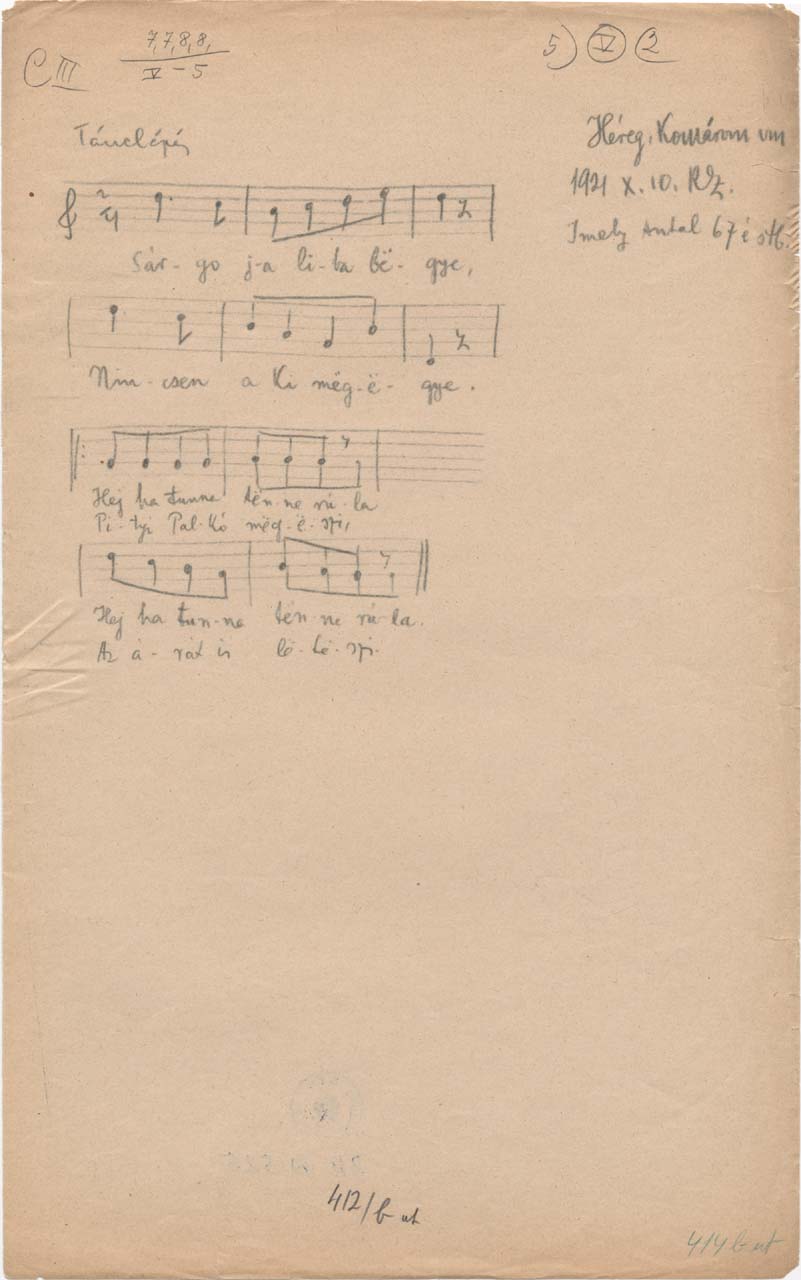 C III
7,7,8,8,
V - 5
5) V 2
Tánclépés
Héreg, Komárom vm
1921 X. 10. RZ.
Imely Antal 67 é stb.
Sár- go j-a li-ba bë- gye,
Nin- csen a Ki még-ë- gye.
Hej ha tunna tén-ne rú-la
Pi-tyi Pal-kó még-ë-szi,
Hej ha tun-ne tén-ne rú-la.
Az á-rát is lë-të-szi.
412/b ut
414 b ut